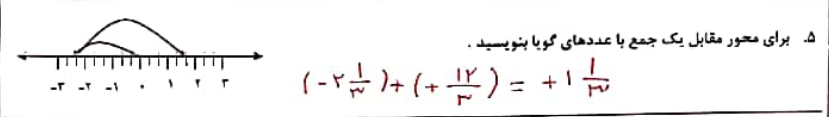 ۵. برای محور مقابل یک جمع با عددهای گویا بنویسید .
(-۲ ۱/۳) + (+ ۱۲/۳) = +۱ ۱/۳
-۳ -۲ -۱ ۰ ۱ ۲ ۳